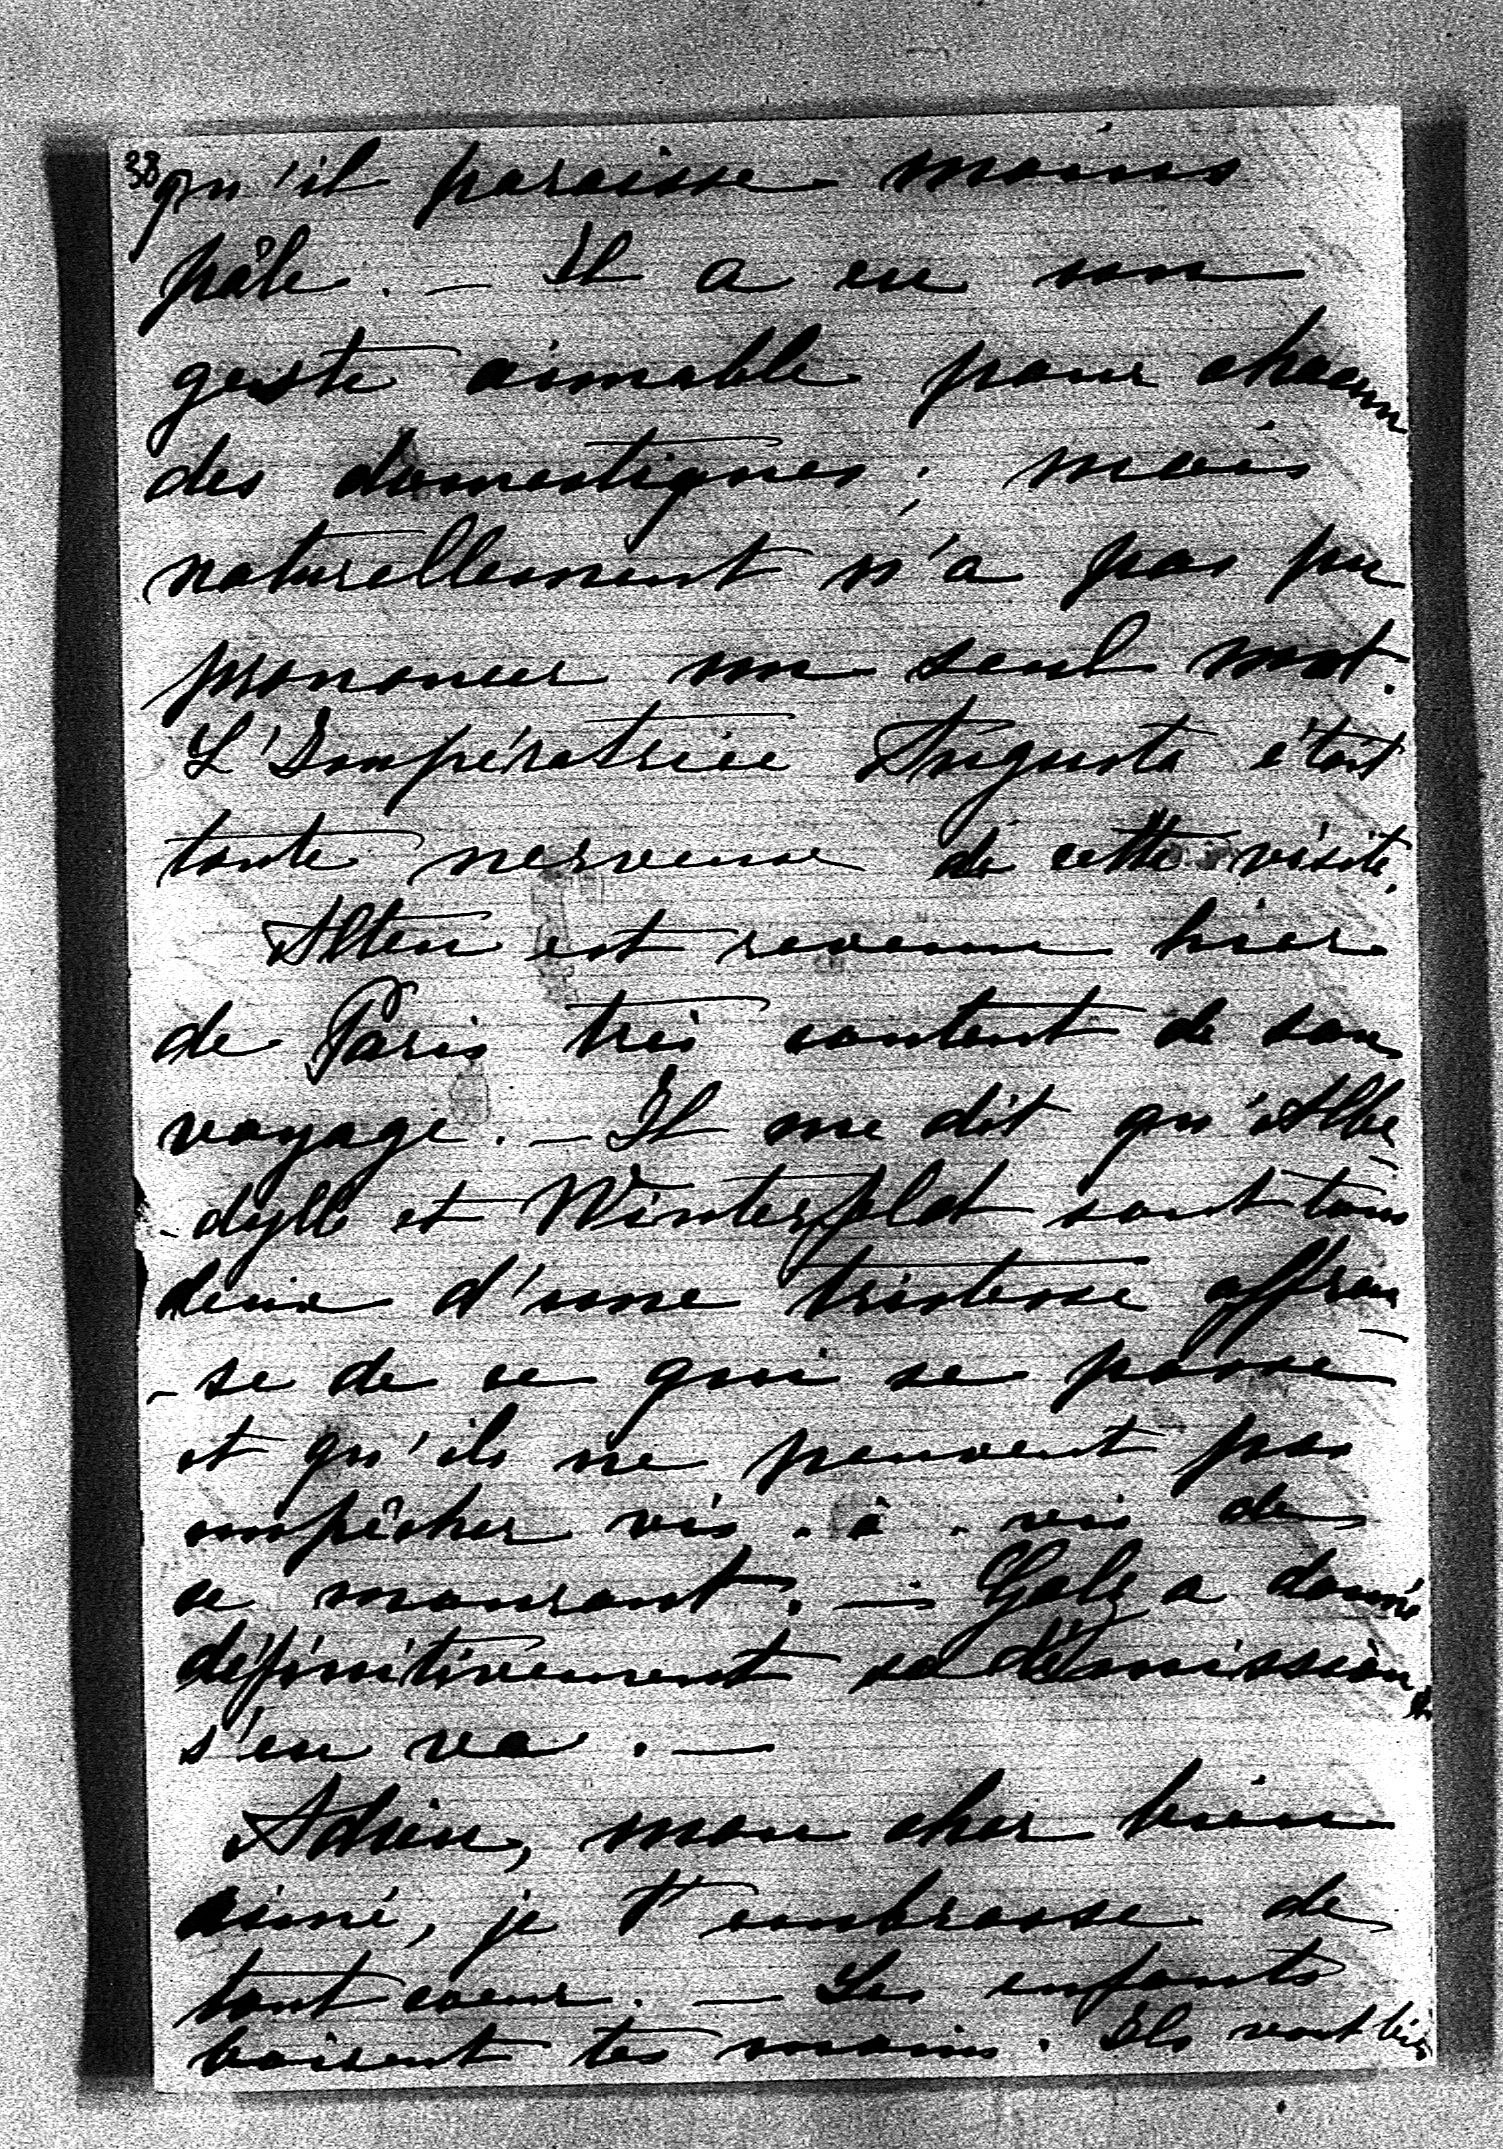 38
qu'il paraisse moins
pâle. — Il a eu un
geste aimable pour chacun
des domestiques; mais
naturellement n'a pas pu
prononcer un seul mot.
L'Impératrice Augusta était
toute nerveuse de cette visite.
Alten est revenu hier
de Paris très content de son
voyage. — Il me dit qu'Albe
dyll et Winterfeldt sont tous
deux d'une tristesse affreu
-se de ce qui se passe
et qu'ils ne peuvent pas
empêcher vis-à-vis de
ce mourant. — Golz a donné
définitivement sa démission &
s'en va. —
Adrien, mon cher bien
aimé, je t'embrasse de
tout coeur. — Les enfants
baisent tes mains. Ils vont bien